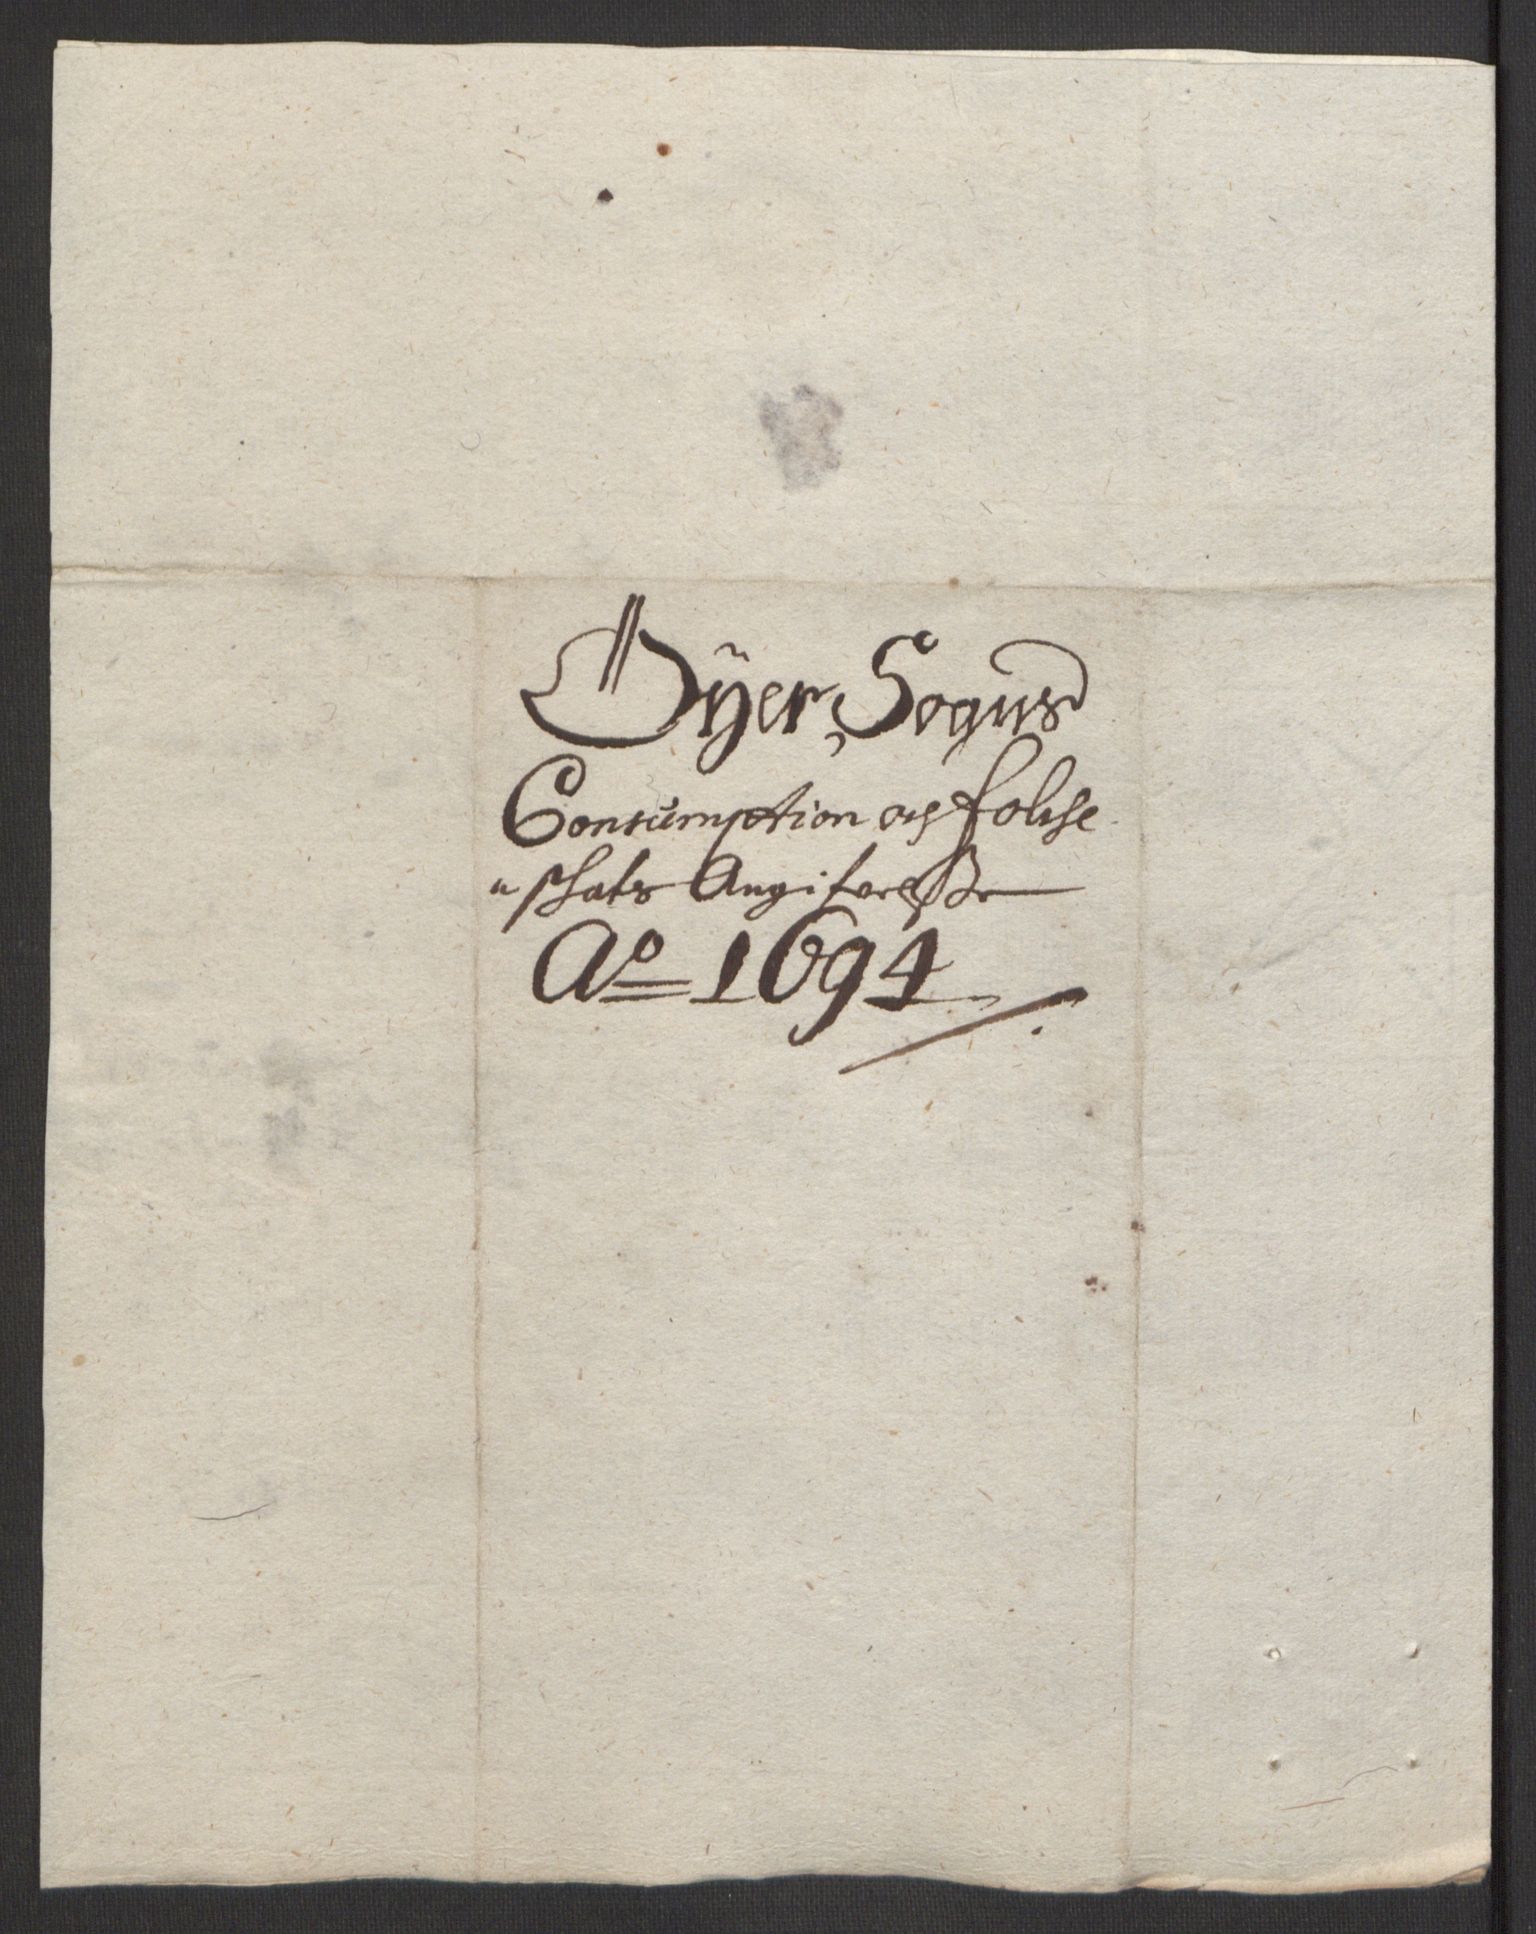 Öÿer Sogns
Consumption och folche
schats Angifvelße
Ao 1694